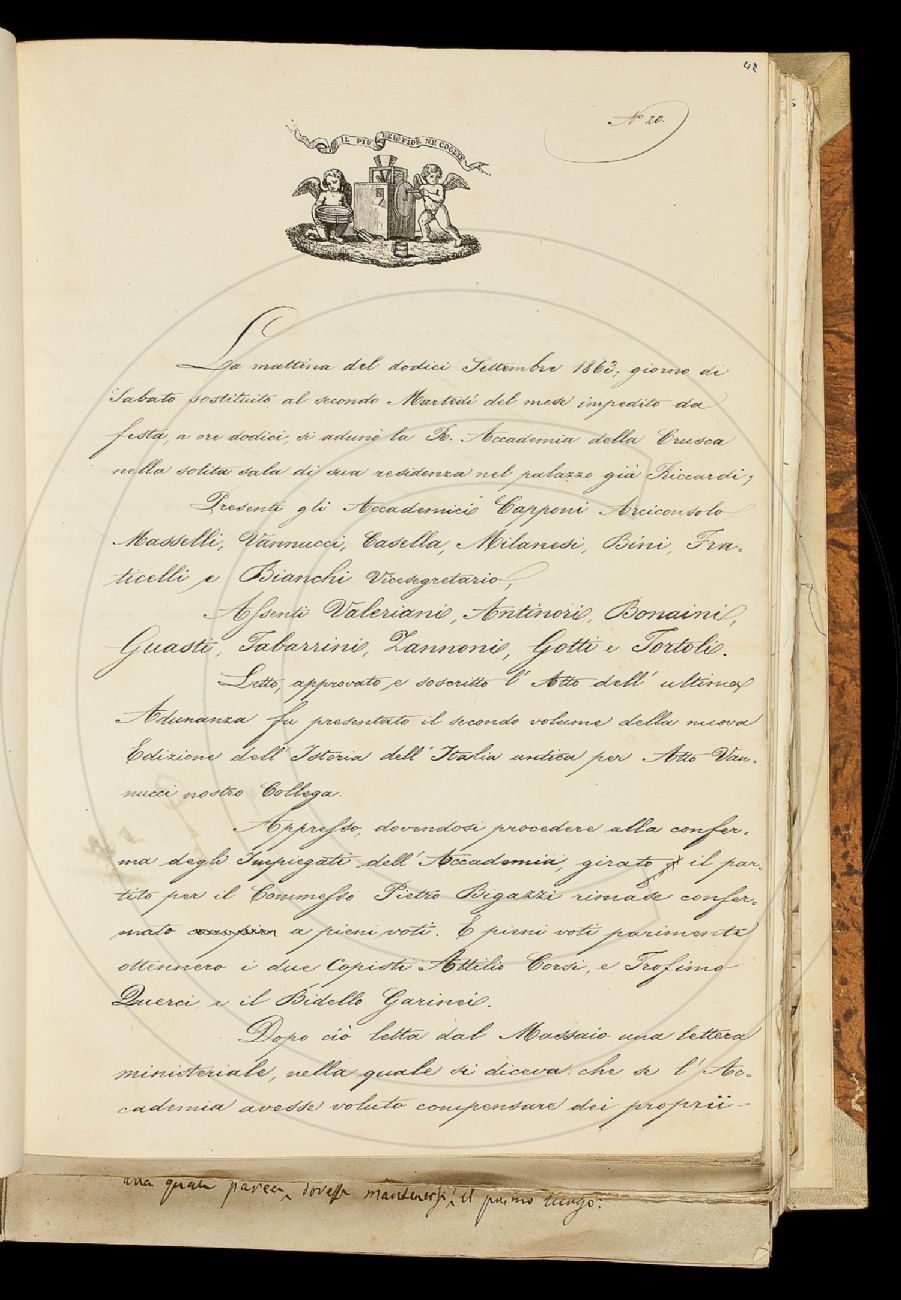 42
N° 20.
IL PIÙ BEL FIOR NE COGLIE
La mattina del dodici Settembre 1863, giorno di
Sabato sostituito al secondo Martedì del mese impedito da
festa, a ore dodici, si adunò la R. Accademia della Crusca
nella solita sala di sua residenza nel palazzo già Riccardi,
Presenti gli Accademici Capponi Arciconsolo
Masselli, Vannucci, Casella, Milanesi, Bini, Fra-
ticelli e Bianchi Vicesegretario,
Assenti Valeriani, Antinori, Bonaini,
Guasti, Tabarrini, Zannoni, Gotti e Tortoli.
Letto, approvato e soscritto l'Atto dell'ultima
Adunanza fu presentato il secondo volume della nuova
Edizione dell'Istoria dell'Italia antica per Atto Van-
nucci nostro Collega.
Appresso, dovendosi procedere alla confer-
ma degli Impiegati dell'Accademia, girato il par-
tito per il Commesso Pietro Bigazzi rimase confer-
mato a pieni voti. E pieni voti parimente
ottennero i due Copisti Attilio Corsi, e Trofimo
Querci, e il Bidello Garinei.
Dopo ciò letta dal Massaio una lettera
ministeriale, nella quale si diceva: che se l'Ac-
cademia avesse voluto compensare dei proprii
parea, dovesse mantenersi il primo luogo.